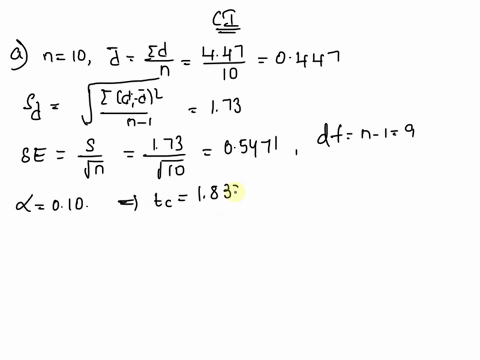 CI
a) n=10, d̄ = Σd/n = 4.47/10 = 0.447
S_d = √(Σ(dᵢ-d̄)²/(n-1)) = 1.73
SE = S/√n = 1.73/√10 = 0.5471, df = n-1 = 9
α = 0.10. ⇒ t_c = 1.83